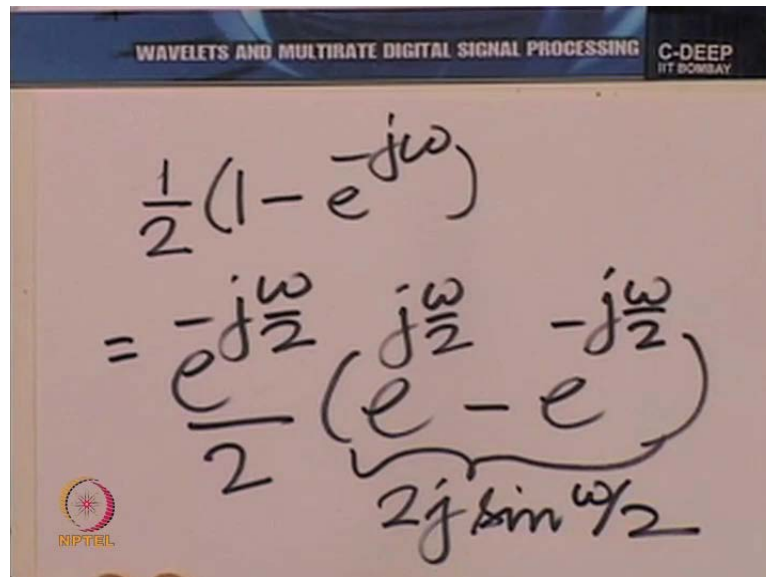 WAVELETS AND MULTIRATE DIGITAL SIGNAL PROCESSING C-DEEP
IIT BOMBAY
1/2 (1 - e^{-jω})
= e^{-jω/2}/2 (e^{jω/2} - e^{-jω/2})
2j sin ω/2
NPTEL